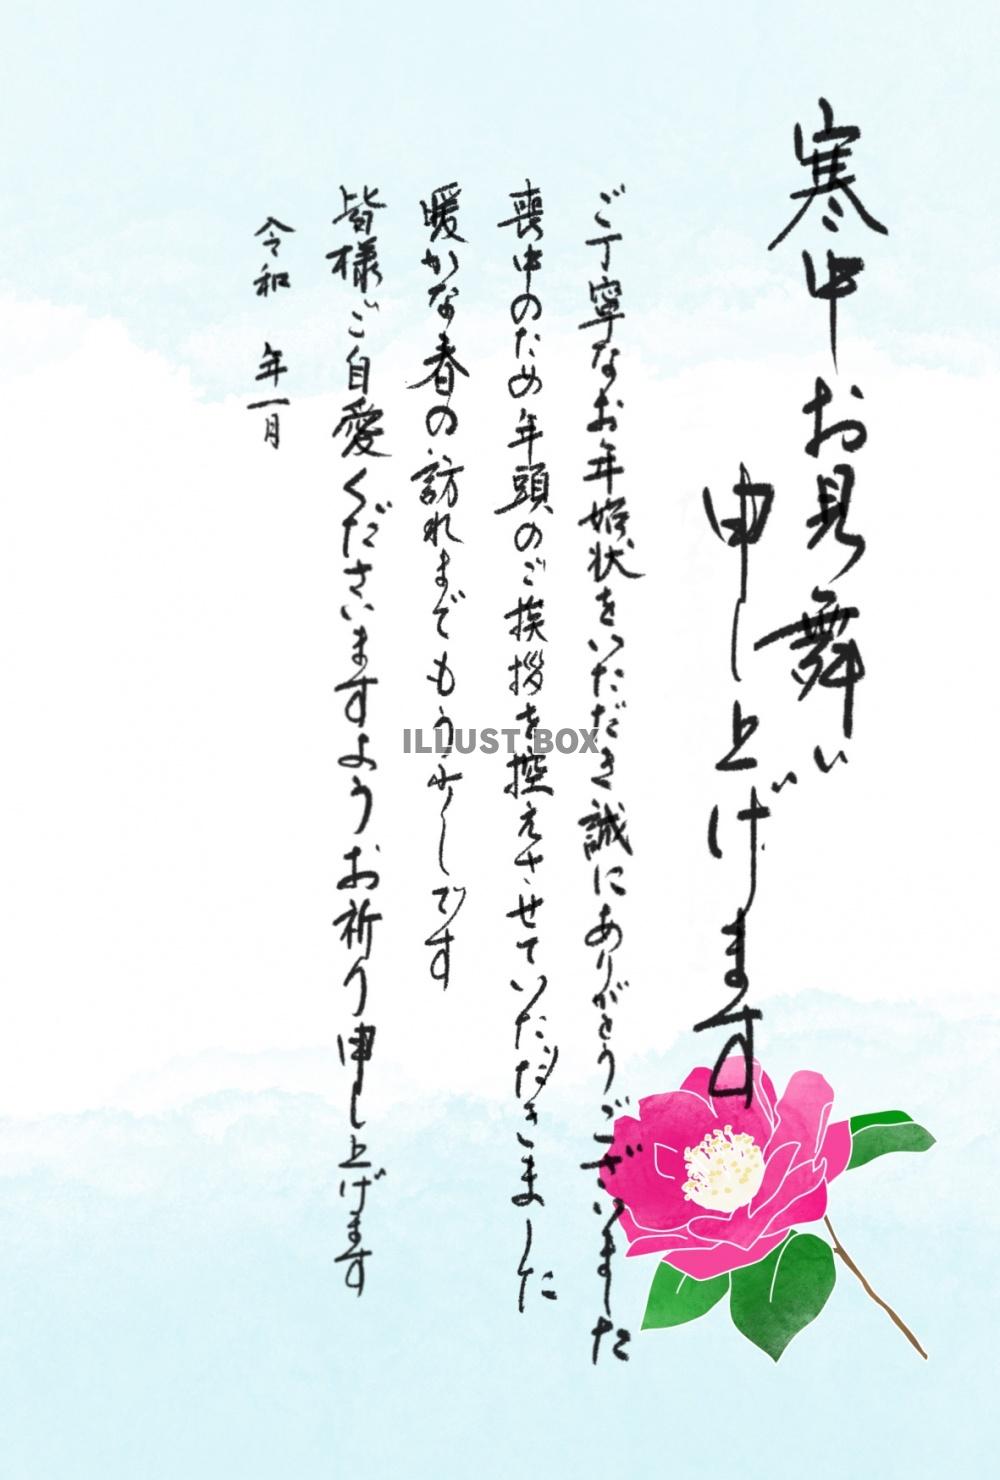 寒中お見舞い
申し上げます
ご丁寧なお年始状をいただき誠にありがとうございました
喪中のため年頭のご挨拶を控えさせていただきました
暖かな春の訪れまでもう少しです
皆様ご自愛くださいますようお祈り申し上げます
令和　年一月
ILLUST BOX